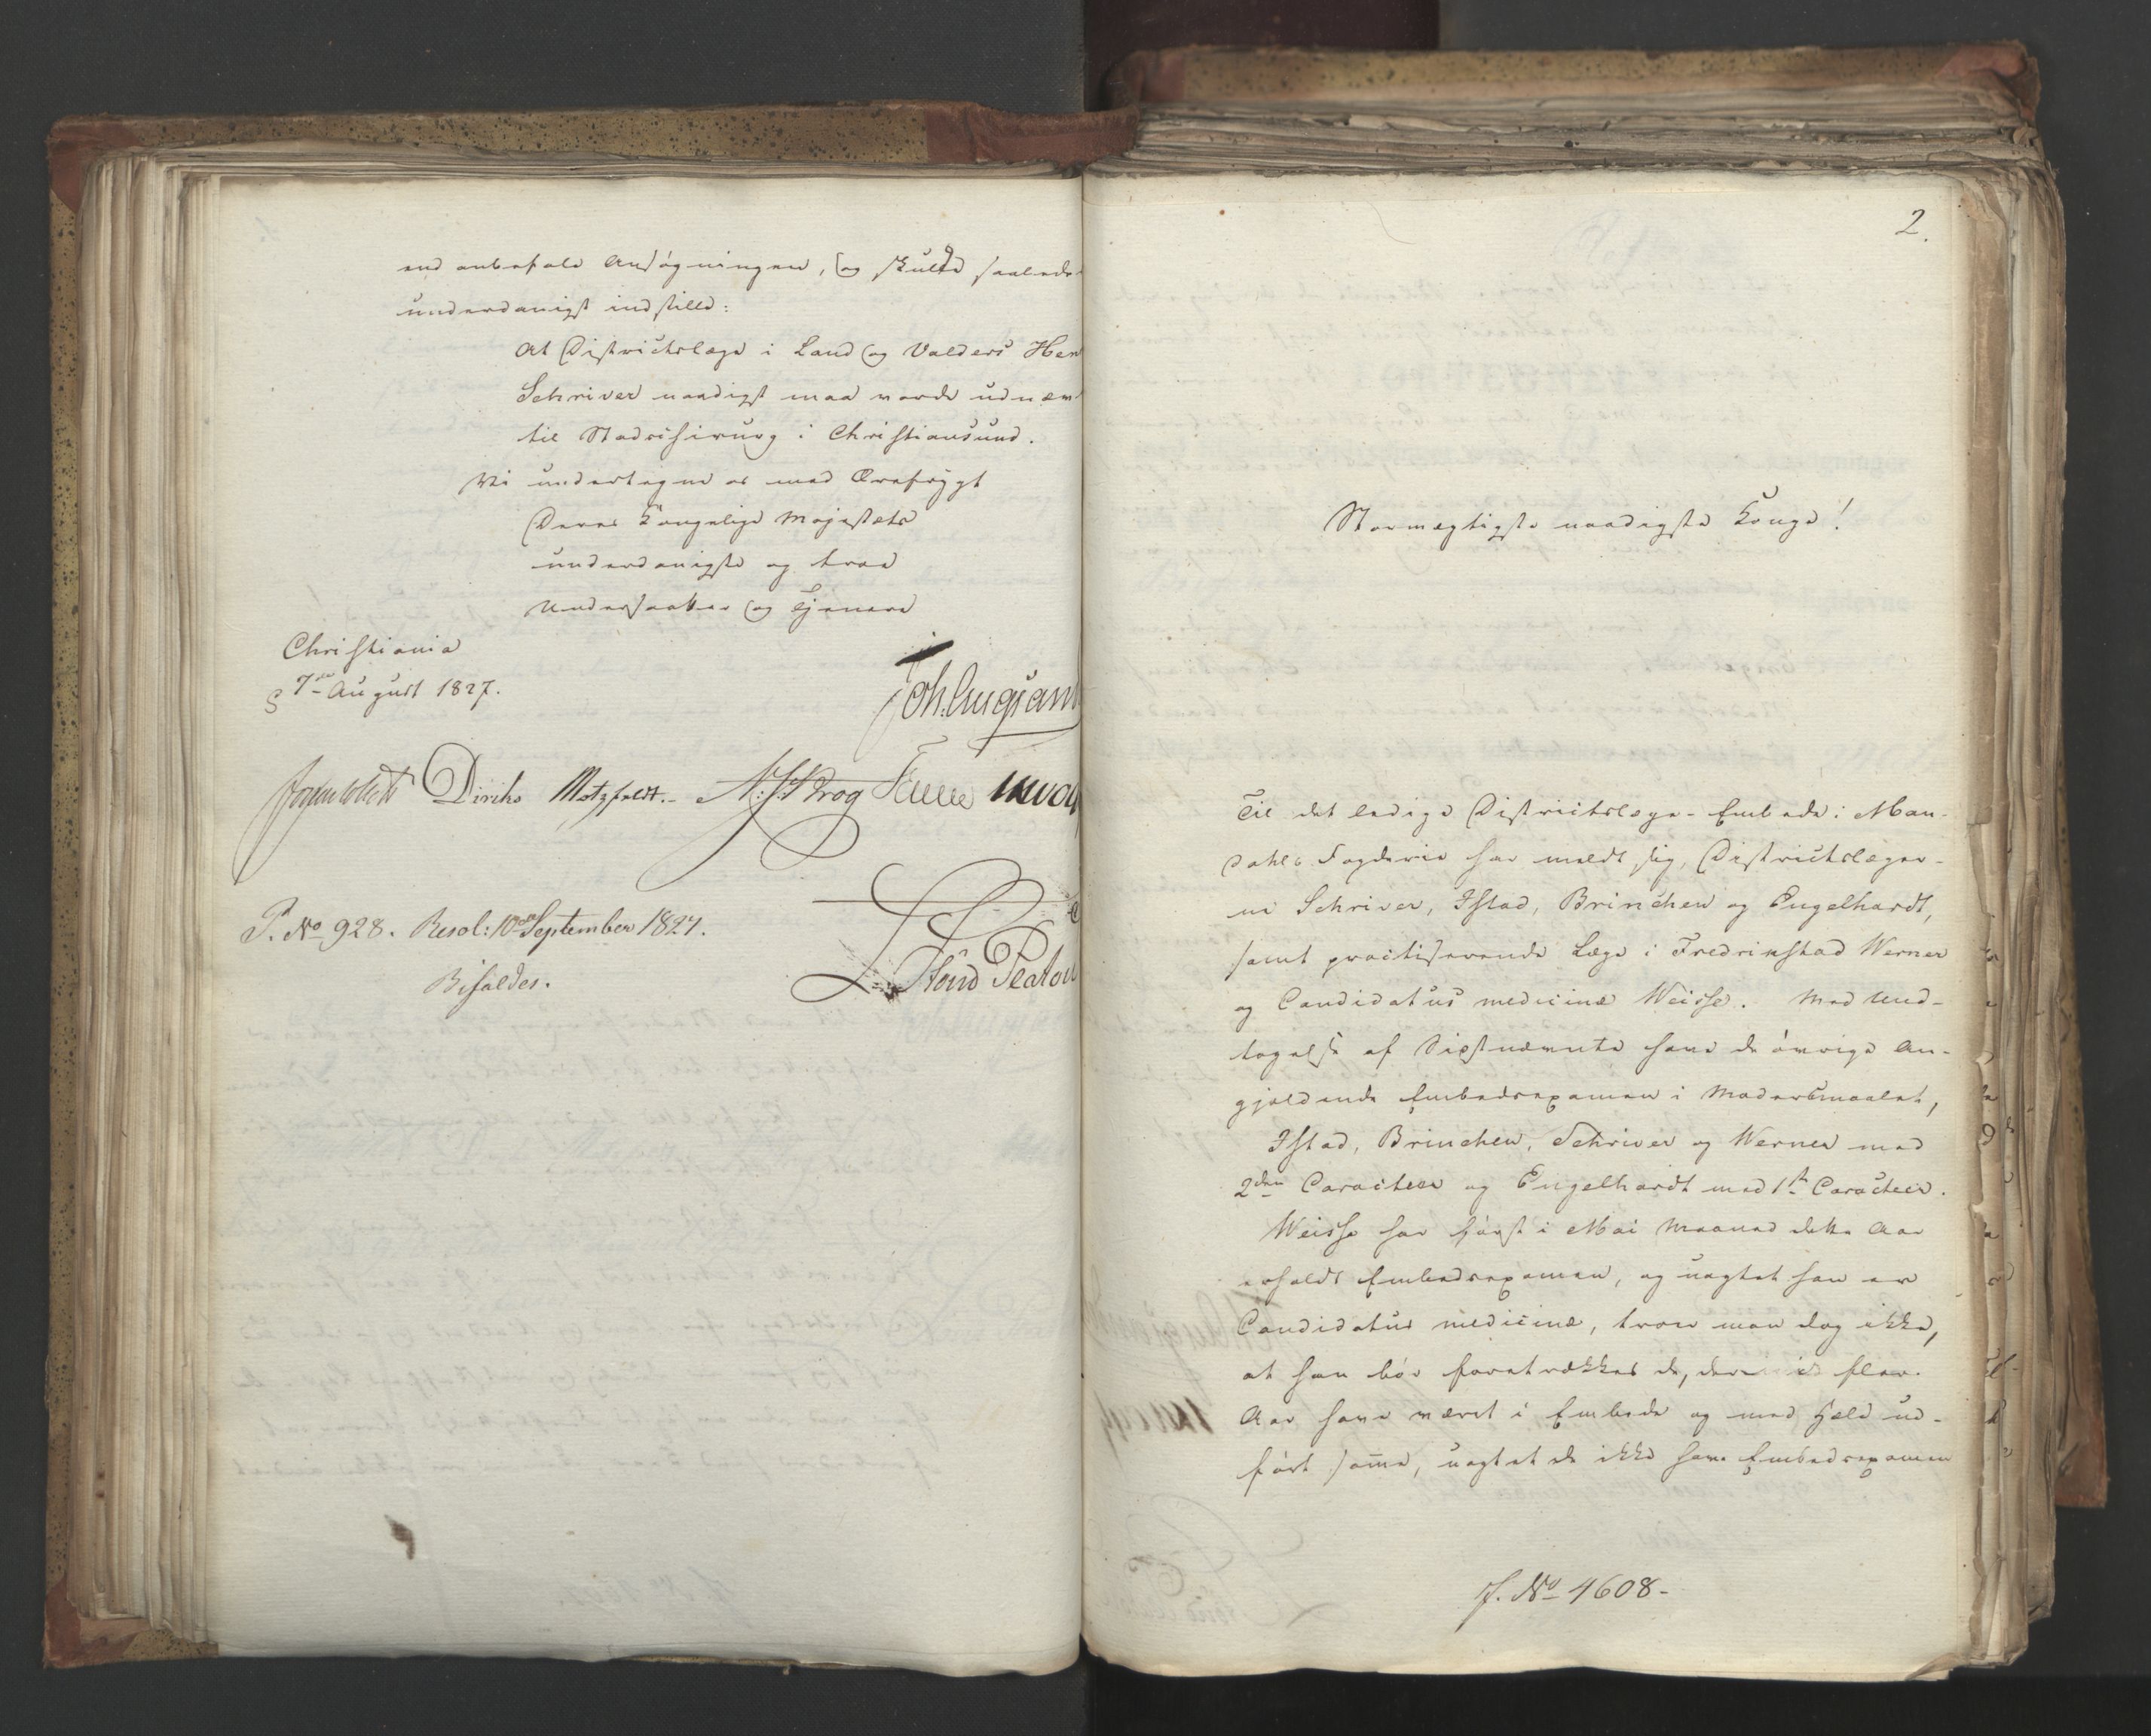 end anbefale Ansøgningen, og skulde saaledes
underdanigst indstille:
At Districtslæge i Land og Valders Her
Schriver naadigst maa vorde udnævn
til Stadschirurg i Christiansund.
Vi undertegne os med Ærefrygt
Deres Kongelige Majestæts
underdanigste og troe
Undersaatter og Tjenere
Christiania
d 7de August 1827.
Joh. Aug: Sand
Diriks Motzfeldt. N: J: Krog Fasting
P. No 928. Resol: 10de September 1827.
Bifaldes.
2.
Stormægtigste naadigste Konge!
Til det ledige Districtslæge-Embede i Man-
dahls Fogderie har meldt sig, Districtslæger-
ne Schriver, Istad, Brinchen og Engelhardt,
samt practiserende Læge i Fredrikstad Werner
og Candidatus medicinæ Weisse. Med Und-
tagelse af Sidstnævnte have de øvrige An-
gjeldende Embedsexamen i Modersmaalet,
Istad, Brinchen, Schriver og Werner med
2den Caracteer og Engelhardt med 1ste Caracteer.
Weisse har først i Mai Maaned dette Aar
erholdt Embedsexamen, og uagtet han er
Candidatus medicinæ, troer man dog ikke,
at han bør foretrækkes de, der i flere
Aar have været i Embede og med Held ud-
ført samme, uagtet de ikke have Embedsexamen
J. No 4608-